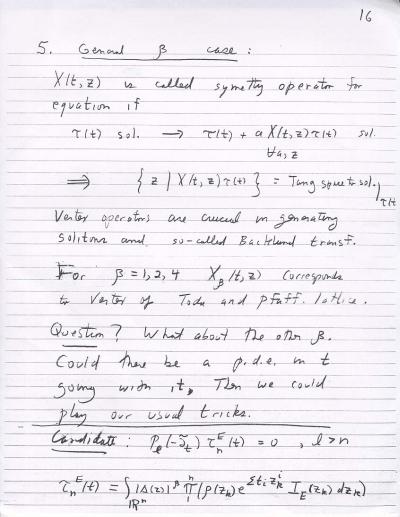 16
5. General β case :
X(t,z) is called symetry operator for
equation if
τ(t) sol. → τ(t) + a X(t,z)τ(t) sol.
∀a,z
⟹ { z | X(t,z)τ(t) } = Tang space to sol.|τ(t)
Vertex operators are crucial in generating
solitons and so-called Backlund transf.
For β = 1,2,4 X_β(t,z) corresponds
to Vertex of Toda and Pfaff. lattice.
Question? What about the other β.
Could there be a p.d.e. in t
going with it, Then we could
play our usual tricks.
Candidate: P_ℓ(-∂̃_t) τ_n^E(t) = 0 , ℓ>n
τ_n^E(t) = ∫_{ℝ^n} |Δ(z)|^β ∏_1^n (ρ(z_k) e^{Σt_i z_k^i} I_E(z_k) dz_k)